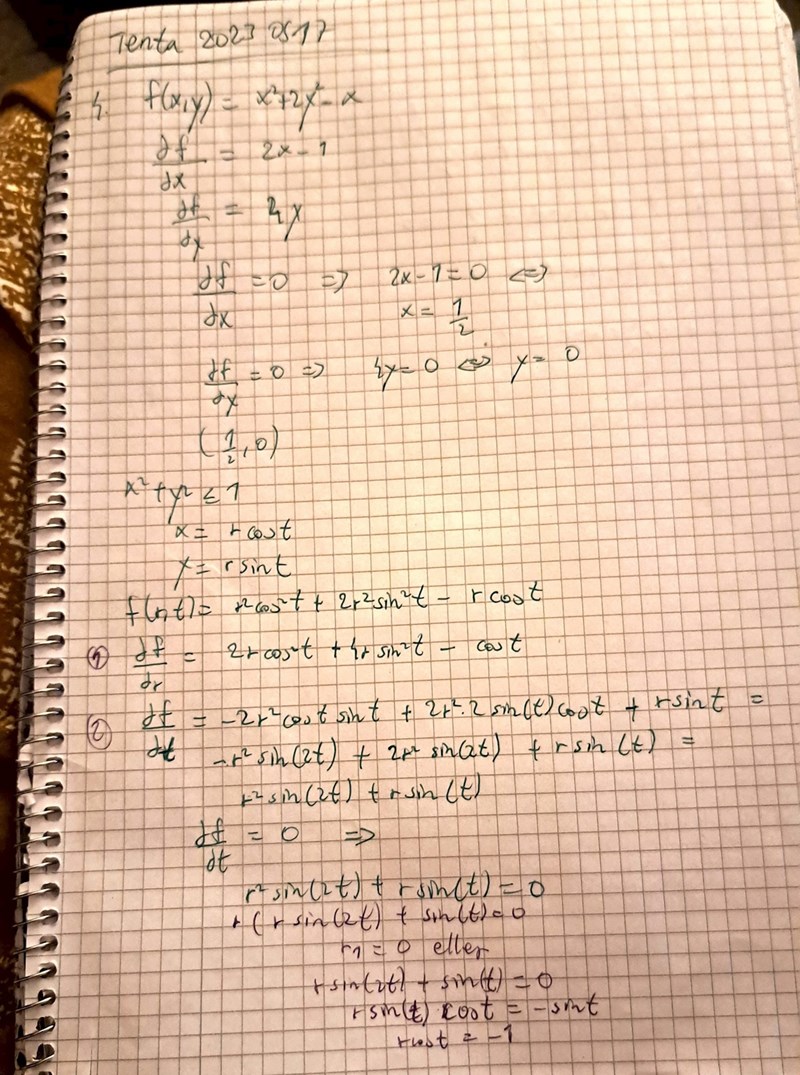 Tenta 2023 0817
4. f(x,y) = x²+2y²-x
∂f/∂x = 2x-1
∂f/∂y = 4y
∂f/∂x = 0 => 2x-1=0 <=>
x = 1/2
∂f/∂y = 0 => 4y=0 <=> y= 0
(1/2, 0)
x²+y² ≤ 1
x = r cost
y = r sint
f(r,t)= r²cos²t + 2r²sin²t - r cost
① ∂f/∂r = 2rcos²t + 4r sin²t - cost
② ∂f/∂t = -2r²cost sint + 2r²·2 sin(t)cost + rsint =
-r²sin(2t) + 2r² sin(2t) + rsin(t) =
r²sin(2t) + rsin(t)
∂f/∂t = 0 =>
r²sin(2t) + rsin(t) = 0
r(r sin(2t) + sin(t)=0
r₁ = 0 eller
rsin(2t) + sin(t) = 0
rsin(t) cost = -sint
rcost = -1